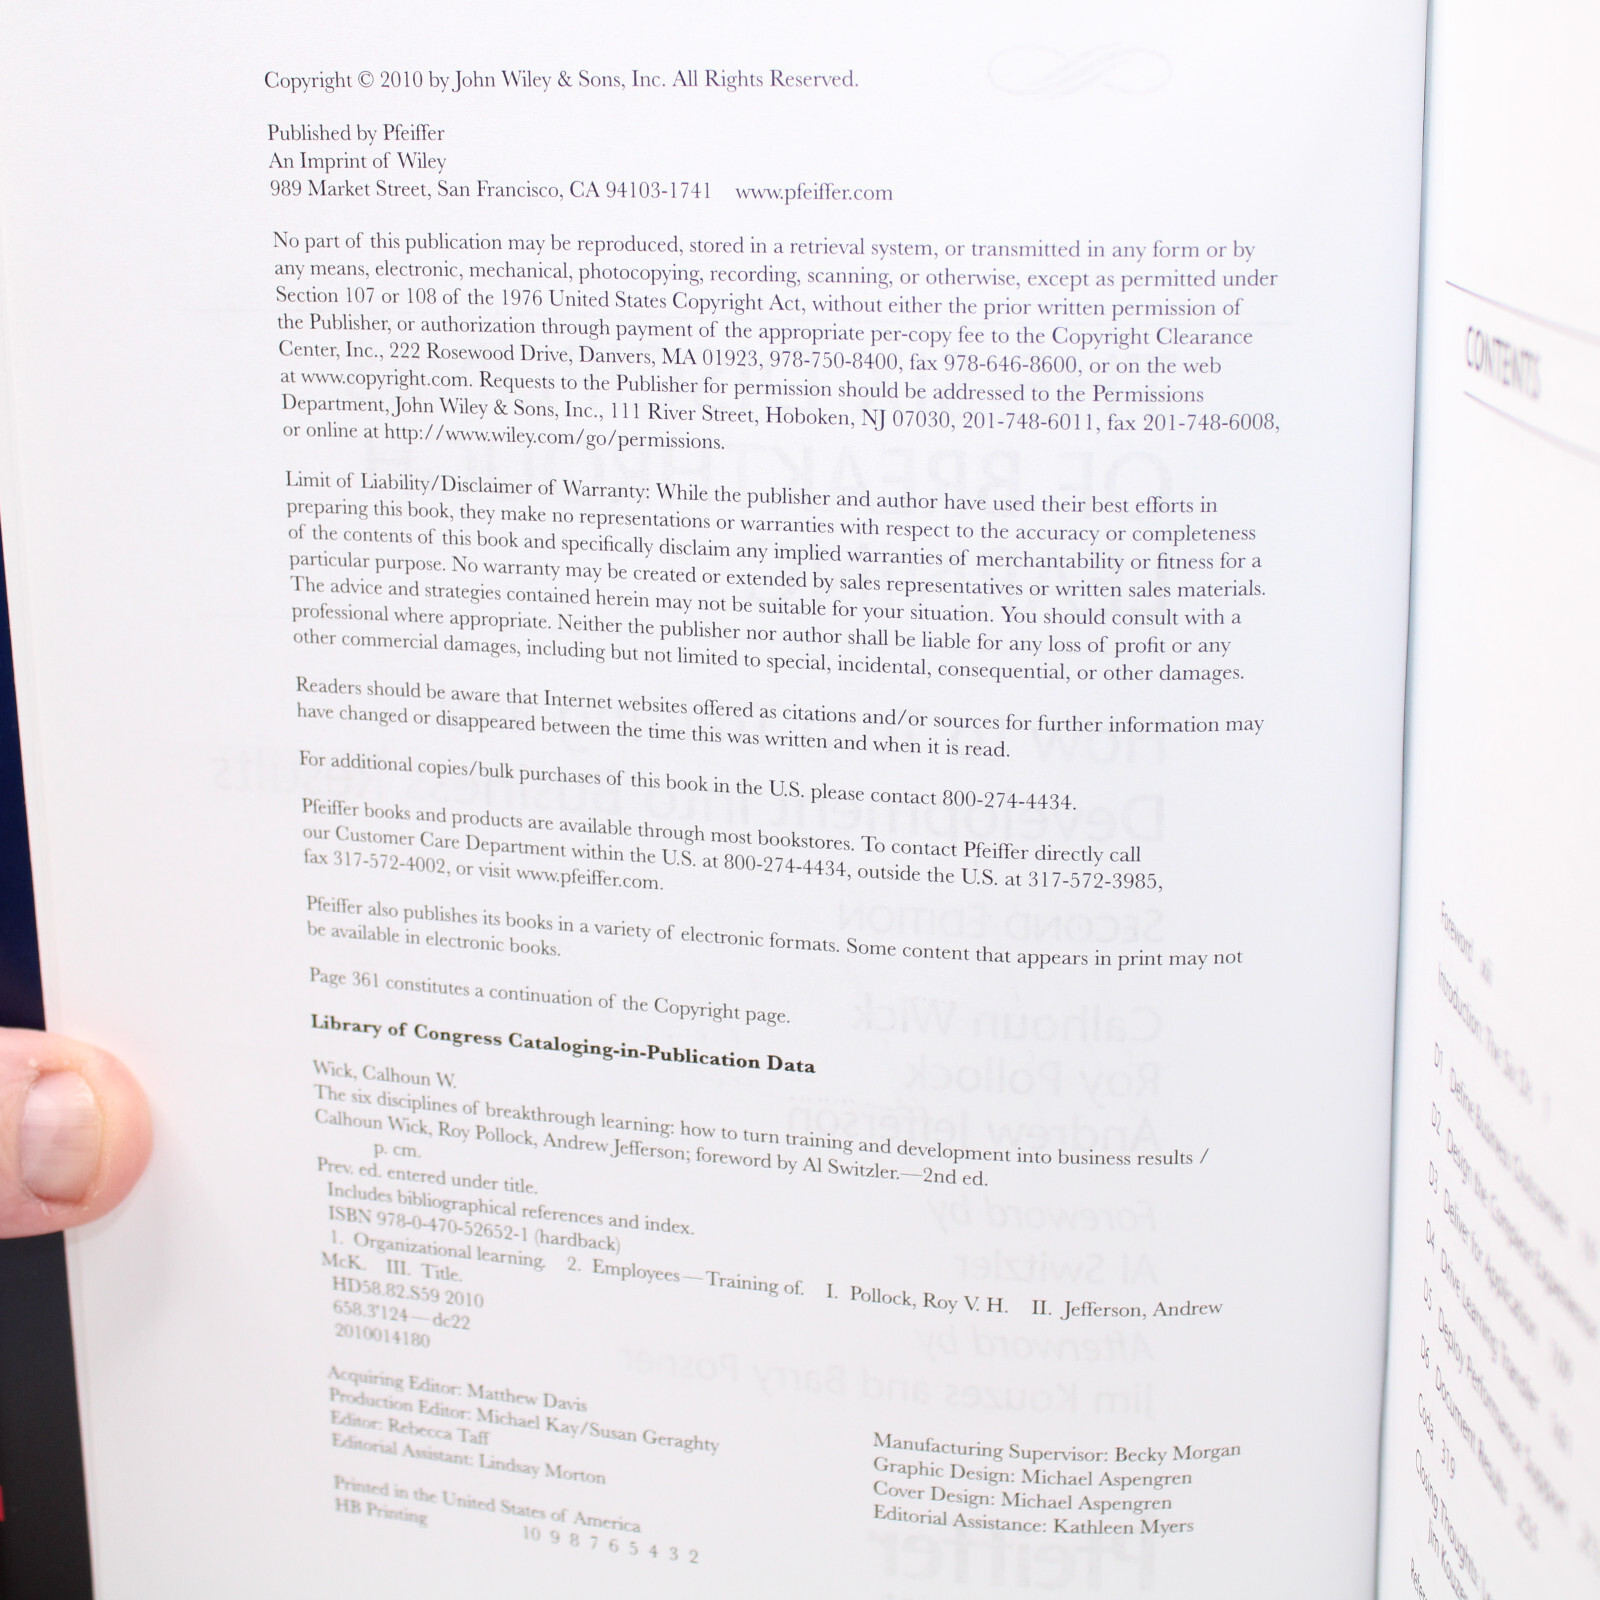 Copyright © 2010 by John Wiley & Sons, Inc. All Rights Reserved.
Published by Pfeiffer
An Imprint of Wiley
989 Market Street, San Francisco, CA 94103-1741 www.pfeiffer.com
No part of this publication may be reproduced, stored in a retrieval system, or transmitted in any form or by
any means, electronic, mechanical, photocopying, recording, scanning, or otherwise, except as permitted under
Section 107 or 108 of the 1976 United States Copyright Act, without either the prior written permission of
the Publisher, or authorization through payment of the appropriate per-copy fee to the Copyright Clearance
Center, Inc., 222 Rosewood Drive, Danvers, MA 01923, 978-750-8400, fax 978-646-8600, or on the web
at www.copyright.com. Requests to the Publisher for permission should be addressed to the Permissions
Department, John Wiley & Sons, Inc., 111 River Street, Hoboken, NJ 07030, 201-748-6011, fax 201-748-6008,
or online at http://www.wiley.com/go/permissions.
Limit of Liability/Disclaimer of Warranty: While the publisher and author have used their best efforts in
preparing this book, they make no representations or warranties with respect to the accuracy or completeness
of the contents of this book and specifically disclaim any implied warranties of merchantability or fitness for a
particular purpose. No warranty may be created or extended by sales representatives or written sales materials.
The advice and strategies contained herein may not be suitable for your situation. You should consult with a
professional where appropriate. Neither the publisher nor author shall be liable for any loss of profit or any
other commercial damages, including but not limited to special, incidental, consequential, or other damages.
Readers should be aware that Internet websites offered as citations and/or sources for further information may
have changed or disappeared between the time this was written and when it is read.
For additional copies/bulk purchases of this book in the U.S. please contact 800-274-4434.
Pfeiffer books and products are available through most bookstores. To contact Pfeiffer directly call
our Customer Care Department within the U.S. at 800-274-4434, outside the U.S. at 317-572-3985,
fax 317-572-4002, or visit www.pfeiffer.com.
Pfeiffer also publishes its books in a variety of electronic formats. Some content that appears in print may not
be available in electronic books.
Page 361 constitutes a continuation of the Copyright page.
Library of Congress Cataloging-in-Publication Data
Wick, Calhoun W.
The six disciplines of breakthrough learning: how to turn training and development into business results /
Calhoun Wick, Roy Pollock, Andrew Jefferson; foreword by Al Switzler.—2nd ed.
p. cm.
Prev. ed. entered under title.
Includes bibliographical references and index.
ISBN 978-0-470-52652-1 (hardback)
1. Organizational learning. 2. Employees—Training of. I. Pollock, Roy V. H. II. Jefferson, Andrew
McK. III. Title.
HD58.82.S59 2010
658.3'124—dc22
2010014180
Acquiring Editor: Matthew Davis
Production Editor: Michael Kay/Susan Geraghty
Editor: Rebecca Taff
Editorial Assistant: Lindsay Morton
Manufacturing Supervisor: Becky Morgan
Graphic Design: Michael Aspengren
Cover Design: Michael Aspengren
Editorial Assistance: Kathleen Myers
Printed in the United States of America
HB Printing
10 9 8 7 6 5 4 3 2
CONTENTS
Foreword xiii
Introduction: The Six Ds 1
D1 Define Business Outcomes
D2 Design the Complete Experience
D3 Deliver for Application
D4 Drive Learning Transfer
D5 Deploy Performance Support
D6 Document Results
Coda
Closing Thoughts: